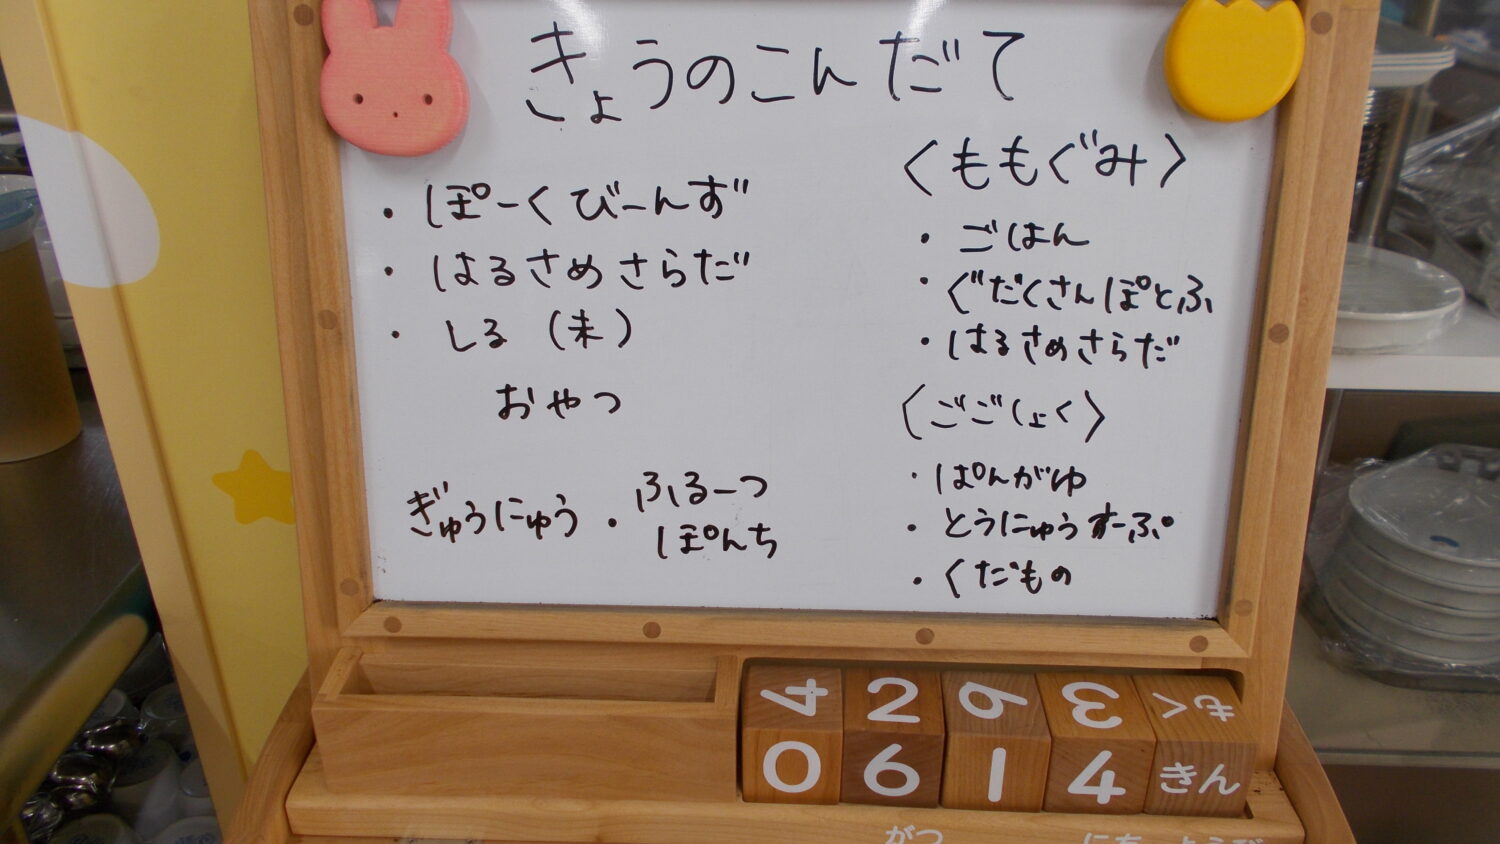 きょうのこんだて
・ぽーくびーんず
・はるさめさらだ
・しる（未）
おやつ
ぎゅうにゅう・ふるーつ
ぽんち
〈ももぐみ〉
・ごはん
・ぐだくさんぽとふ
・はるさめさらだ
〈ごごしょく〉
・ぱんがゆ
・とうにゅうすーぷ
・くだもの
4 2 9 3 もく
0 6 1 4 きん
がつ にち ようび